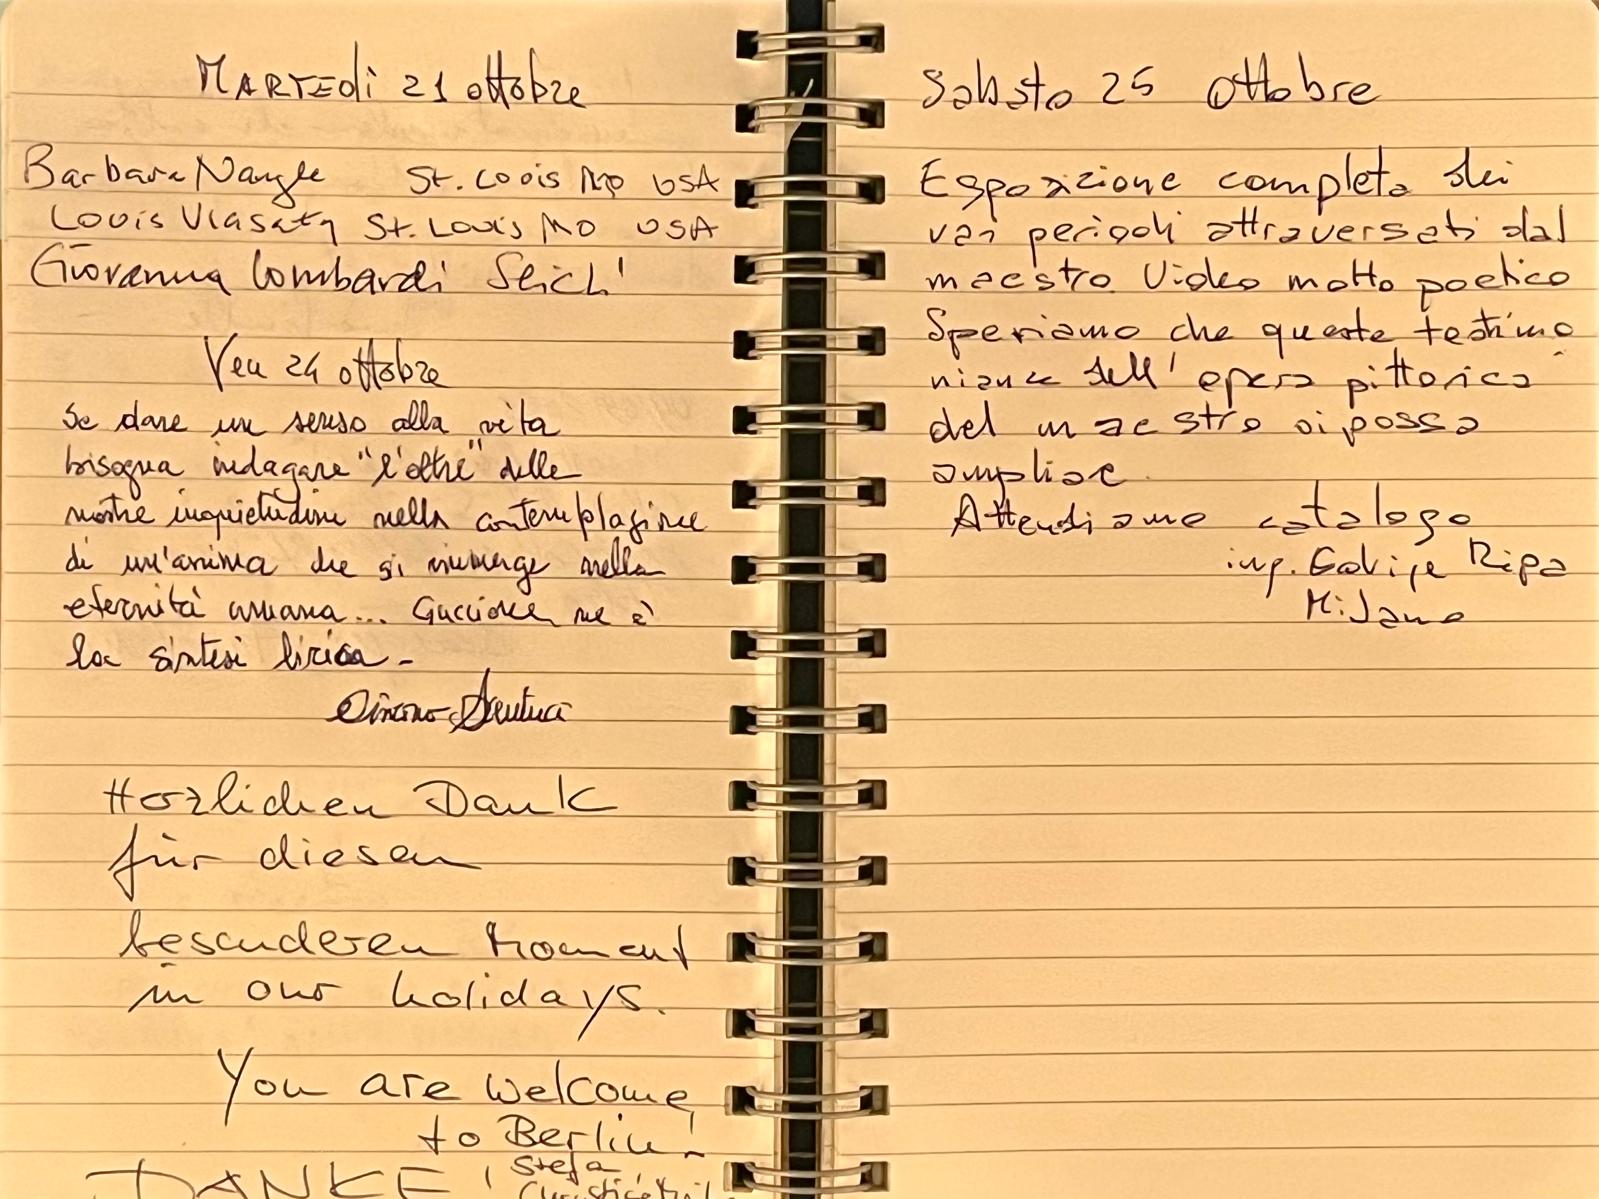 MARTEDì 21 ottobre
Barbara Nangle St. Louis MO USA
Louis Vlasaty St. Louis MO USA
Giovanna Lombardi
Ven 24 ottobre
Se dare un senso alla vita
bisogna indagare "l'oltre" delle
nostre inquietudini nella contemplazione
di un'anima che si immerge nella
eternità umana... Guccione ne è
la sintesi lirica -
Herzlichen Dank
für diesen
besonderen Moment
in our holidays.
You are welcome
to Berlin!
DANKE!
Stefa
Sabato 25 Ottobre
Esposizione completa dei
vari periodi attraversati dal
maestro. Video molto poetico
Speriamo che queste testimo
nianze dell'opera pittorica
del maestro si possa
ampliare.
Attendiamo catalogo
ing. Ripa
Milano